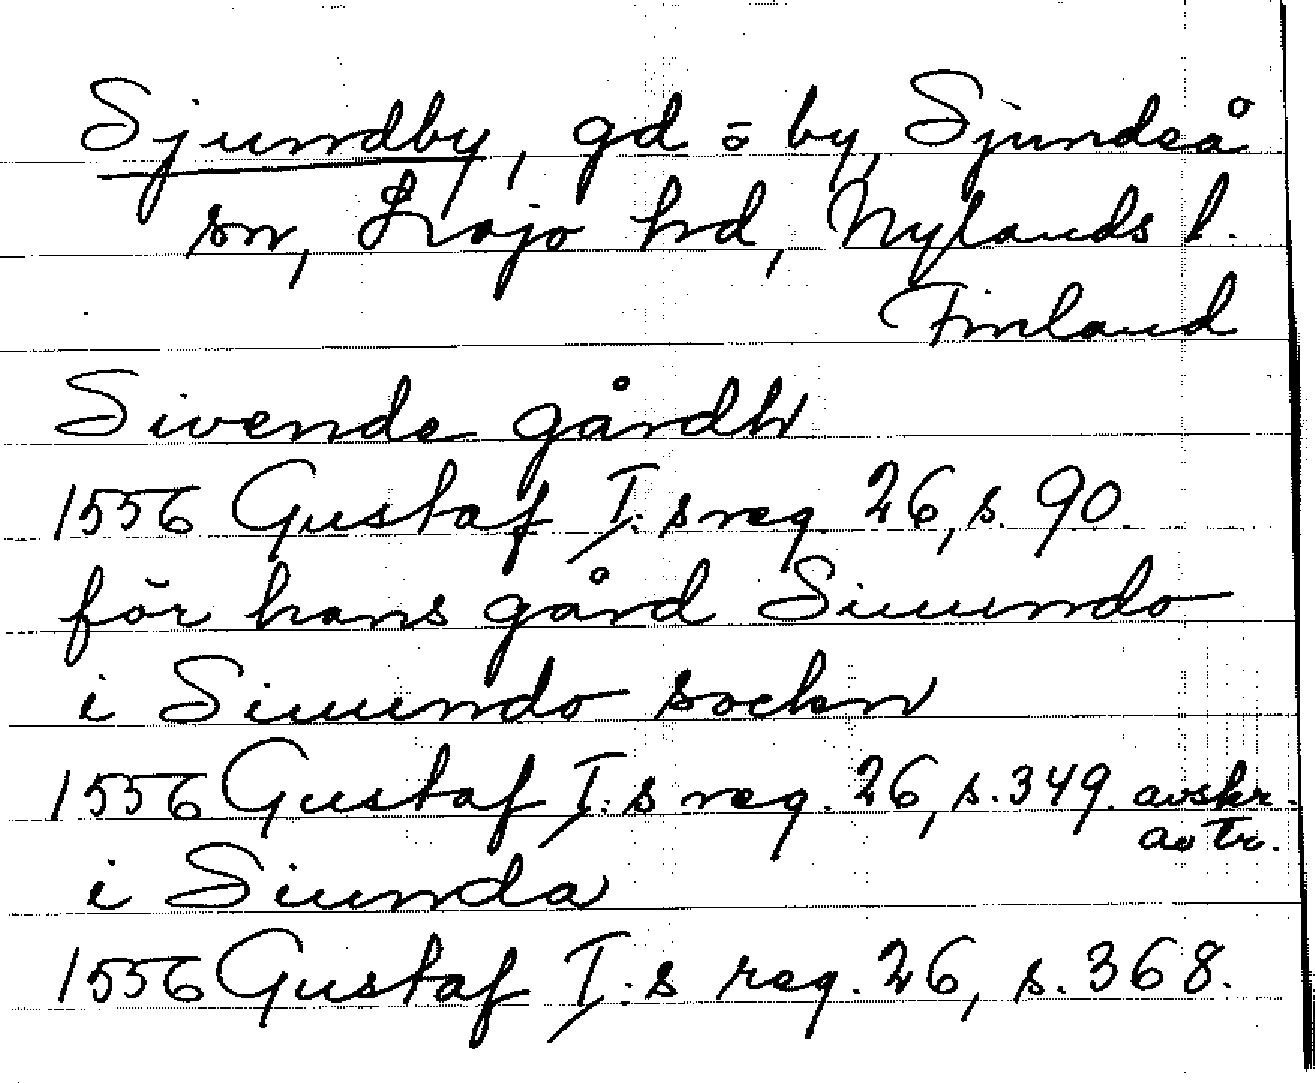 Sjundby, gd o by, Sjundeå
sn, Lojo hd, Nylands l.
Finland
Sivende gårdh
1556 Gustaf I:s reg. 26, s. 90.
för hans gård Siuundo
i Siuundo sochn
1556 Gustaf I:s reg. 26, s. 349. avskr.
av tr.
i Siunda
1556 Gustaf I:s reg. 26, s. 368.